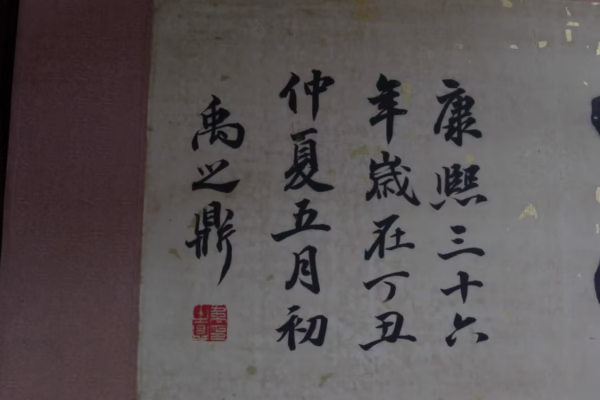 康熙三十六
年歲在丁丑
仲夏五月初
禹之鼎